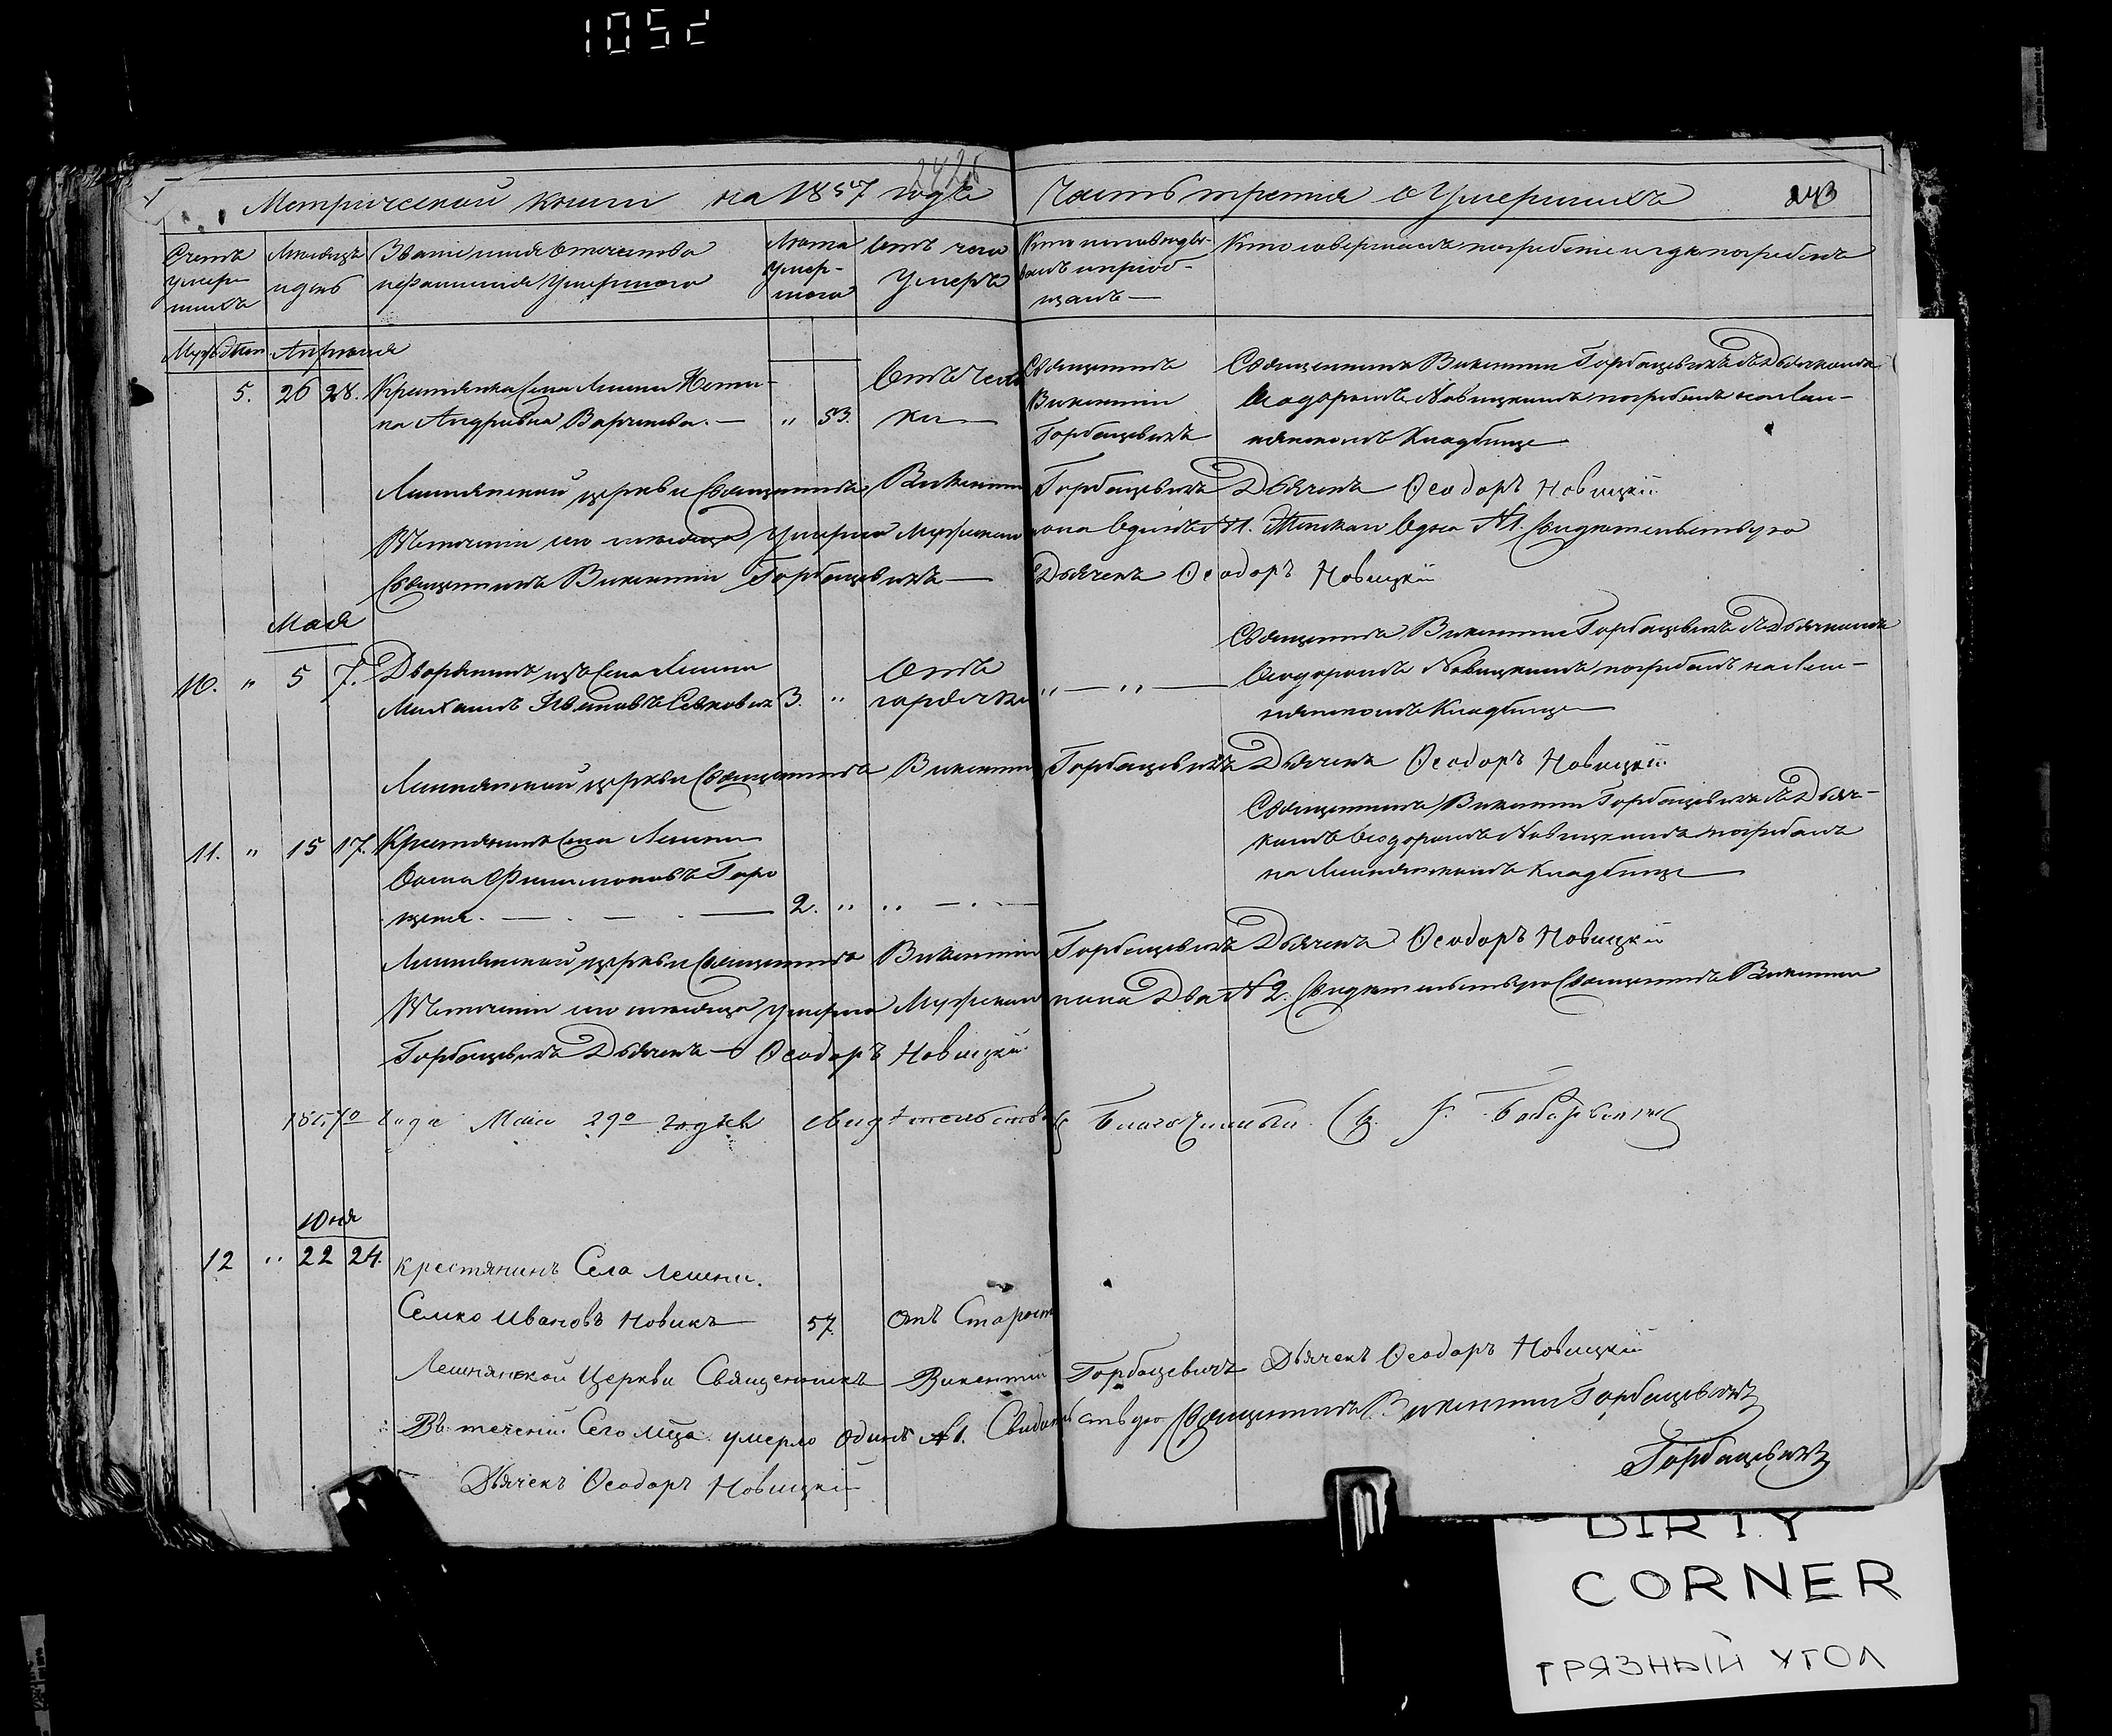 1052
2426
Метрической книги на 1857 годъ Часть третия о Умершихъ 243
Счетъ умершихъ
Месяцъ и день
Званіе имя отчество и фамилія умершого
Лета умершого
Отъ чего Умеръ
Кто исповедывалъ и приобщалъ
Кто совершалъ погребеніе и где погребенъ
Апреля
5. 26 28. Крестянка Села Лешни
на Андреевна — " 53.
Священникъ Викентій Горбацевичъ
Священникъ Викентій Горбацевичъ съ Дьячкомъ
Феодоромъ Новицкимъ погребалъ на Леш-
нянскомъ Кладбище
Лешнянской церкви Священникъ Викентій Горбацевичъ Дьячекъ Ѳеодоръ Новицкій
Втеченіи сего месяца умерло Мужескаго пола Одинъ №1. Женскаго Одна №1. Свидетельствую
Священникъ Викентій Горбацевичъ — Дьячекъ Ѳеодоръ Новицкій
Мая
10. " 5 7. Дворянинъ изъ Села Лешни
Михаилъ Ивановъ 3. "
Отъ горячки
" — " —
Священникъ Викентій Горбацевичъ съ Дьячкомъ
Феодоромъ Новицкимъ погребалъ на Леш-
нянскомъ Кладбище
Лешнянской церкви Священникъ Викентій Горбацевичъ Дьячекъ Ѳеодоръ Новицкій
11. " 15 17. Крестянинъ Села Лешни
Фома Филимоновъ
2. " " — . —
Священникъ Викентій Горбацевичъ съ Дьяч-
комъ Феодоромъ Новицкимъ погребалъ
на Лешнянскомъ Кладбище
Лешнянской церкви Священникъ Викентій Горбацевичъ Дьячекъ Ѳеодоръ Новицкій
Втеченіи сего месяца умерло Мужескаго пола Два №2. Свидетельствую Священникъ Викентій
Горбацевичъ Дьячекъ — Ѳеодоръ Новицкій
1857го Года Мая 29о свидѣтельств Благочинный
Юня
12 " 22 24. Крестянинъ Села Лешни.
Семко Ивановъ Новикъ 57. Отъ Старост
Лешнянской Церкви Священникъ Викентій Горбацевичъ Дьячекъ Ѳеодоръ Новицкій
Въ теченіи Сего мца умерло Одинъ №1. Свидетельствую Священникъ Викентій Горбацевичъ
Горбацевичъ
Дьячекъ Ѳеодоръ Новицкій
DIRTY
CORNER
ГРЯЗНЫЙ УГОЛ